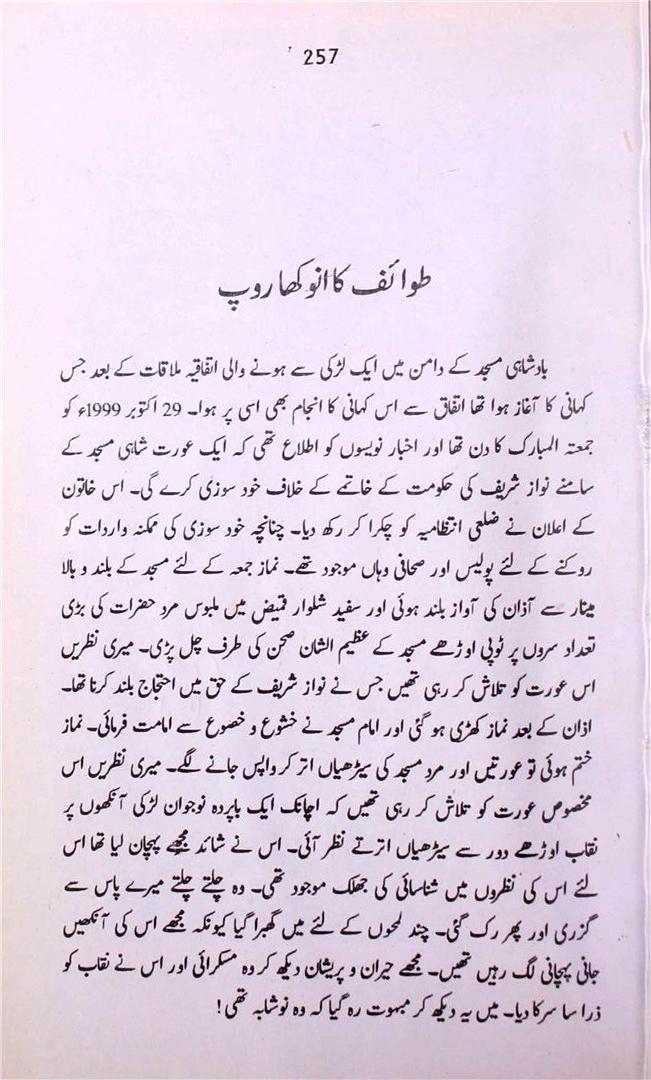 257
طوائف کا انوکھا روپ
بادشاہی مسجد کے دامن میں ایک لڑکی سے ہونے والی اتفاقیہ ملاقات کے بعد جس
کہانی کا آغاز ہوا تھا اتفاق سے اس کہانی کا انجام بھی اسی پر ہوا۔ 29 اکتوبر 1999ء کو
جمعتہ المبارک کا دن تھا اور اخبار نویسوں کو اطلاع تھی کہ ایک عورت شاہی مسجد کے
سامنے نواز شریف کی حکومت کے خاتمے کے خلاف خود سوزی کرے گی۔ اس خاتون
کے اعلان نے ضلعی انتظامیہ کو چکرا کر رکھ دیا۔ چنانچہ خود سوزی کی ممکنہ واردات کو
روکنے کے لئے پولیس اور صحافی وہاں موجود تھے۔ نماز جمعہ کے لئے مسجد کے بلند و بالا
مینار سے آذان کی آواز بلند ہوئی اور سفید شلوار قمیض میں ملبوس مرد حضرات کی بڑی
تعداد سروں پر ٹوپی اوڑھے مسجد کے عظیم الشان صحن کی طرف چل پڑی۔ میری نظریں
اس عورت کو تلاش کر رہی تھیں جس نے نواز شریف کے حق میں احتجاج بلند کرنا تھا۔
اذان کے بعد نماز کھڑی ہو گئی اور امام مسجد نے خشوع و خصوع سے امامت فرمائی۔ نماز
ختم ہوئی تو عورتیں اور مرد مسجد کی سیڑھیاں اتر کر واپس جانے لگے۔ میری نظریں اس
مخصوص عورت کو تلاش کر رہی تھیں کہ اچانک ایک باپردہ نوجوان لڑکی آنکھوں پر
نقاب اوڑھے دور سے سیڑھیاں اترتے نظر آئی۔ اس نے شائد مجھے پہچان لیا تھا اس
لئے اس کی نظروں میں شناسائی کی جھلک موجود تھی۔ وہ چلتے چلتے میرے پاس سے
گزری اور پھر رک گئی۔ چند لمحوں کے لئے میں گھبرا گیا کیونکہ مجھے اس کی آنکھیں
جانی پہچانی لگ رہیں تھیں۔ مجھے حیران و پریشان دیکھ کر وہ مسکرائی اور اس نے نقاب کو
ذرا سا سرکا دیا۔ میں یہ دیکھ کر مبہوت رہ گیا کہ وہ نوشابہ تھی!